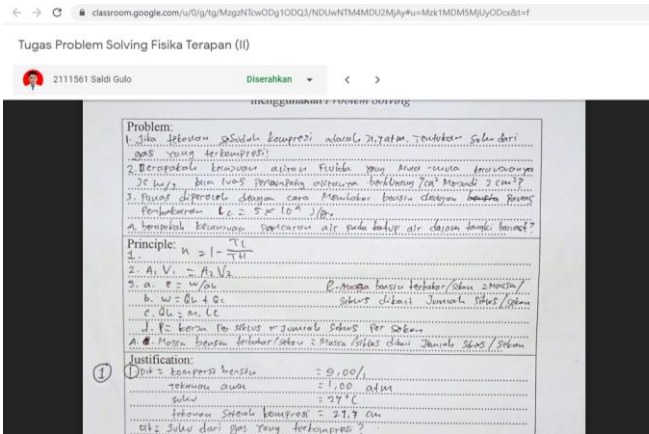 classroom.google.com/u/0/g/tg/MzgzNTcwODg1ODQ3/NDUwNTM4MDU2MjAy#u=Mzk1MDM5MjUyODcx&t=f
Tugas Problem Solving Fisika Terapan (II)
2111561 Saldi Gulo
Diserahkan
menggunakan Problem Solving
Problem:
1. Jika tekanan sesudah kompresi adalah 21,7 atm. Tentukan Suhu dari
gas yang terkompresi!
2. Berapakah aliran Fluida yang Mula-mula
bila luas Penampang alirannya 7 cm² Menjadi 2 cm²?
3. Panas diperoleh dengan cara Membakar bensin dengan Panas
Pembakaran Lc = 5 x 10⁴ J/gr.
4. berapakah air pada katup air dalam tangki
Principle:
1. n = 1 - TL/TH
2. A₁ V₁ = A₂ V₂
3. a. e = w/QH
b. w = QH + Qc
c. QH = m. Lc
d. P = kerja Per siklus x Jumlah Siklus Per Sekon
e. Massa bensin terbakar/sekon = Massa/
Siklus dikali Jumlah Siklus/sekon
4. Massa bensin terbakar/sekon = Massa/siklus dikali Jumlah Siklus/Sekon
Justification:
1
Dik = kompresi bensin = 9,00/1
tekanan awal = 1,00 atm
suhu = 27°C
tekanan Setelah kompresi = 21.7 atm
Dit: Suhu dari gas Yang terkompresi?